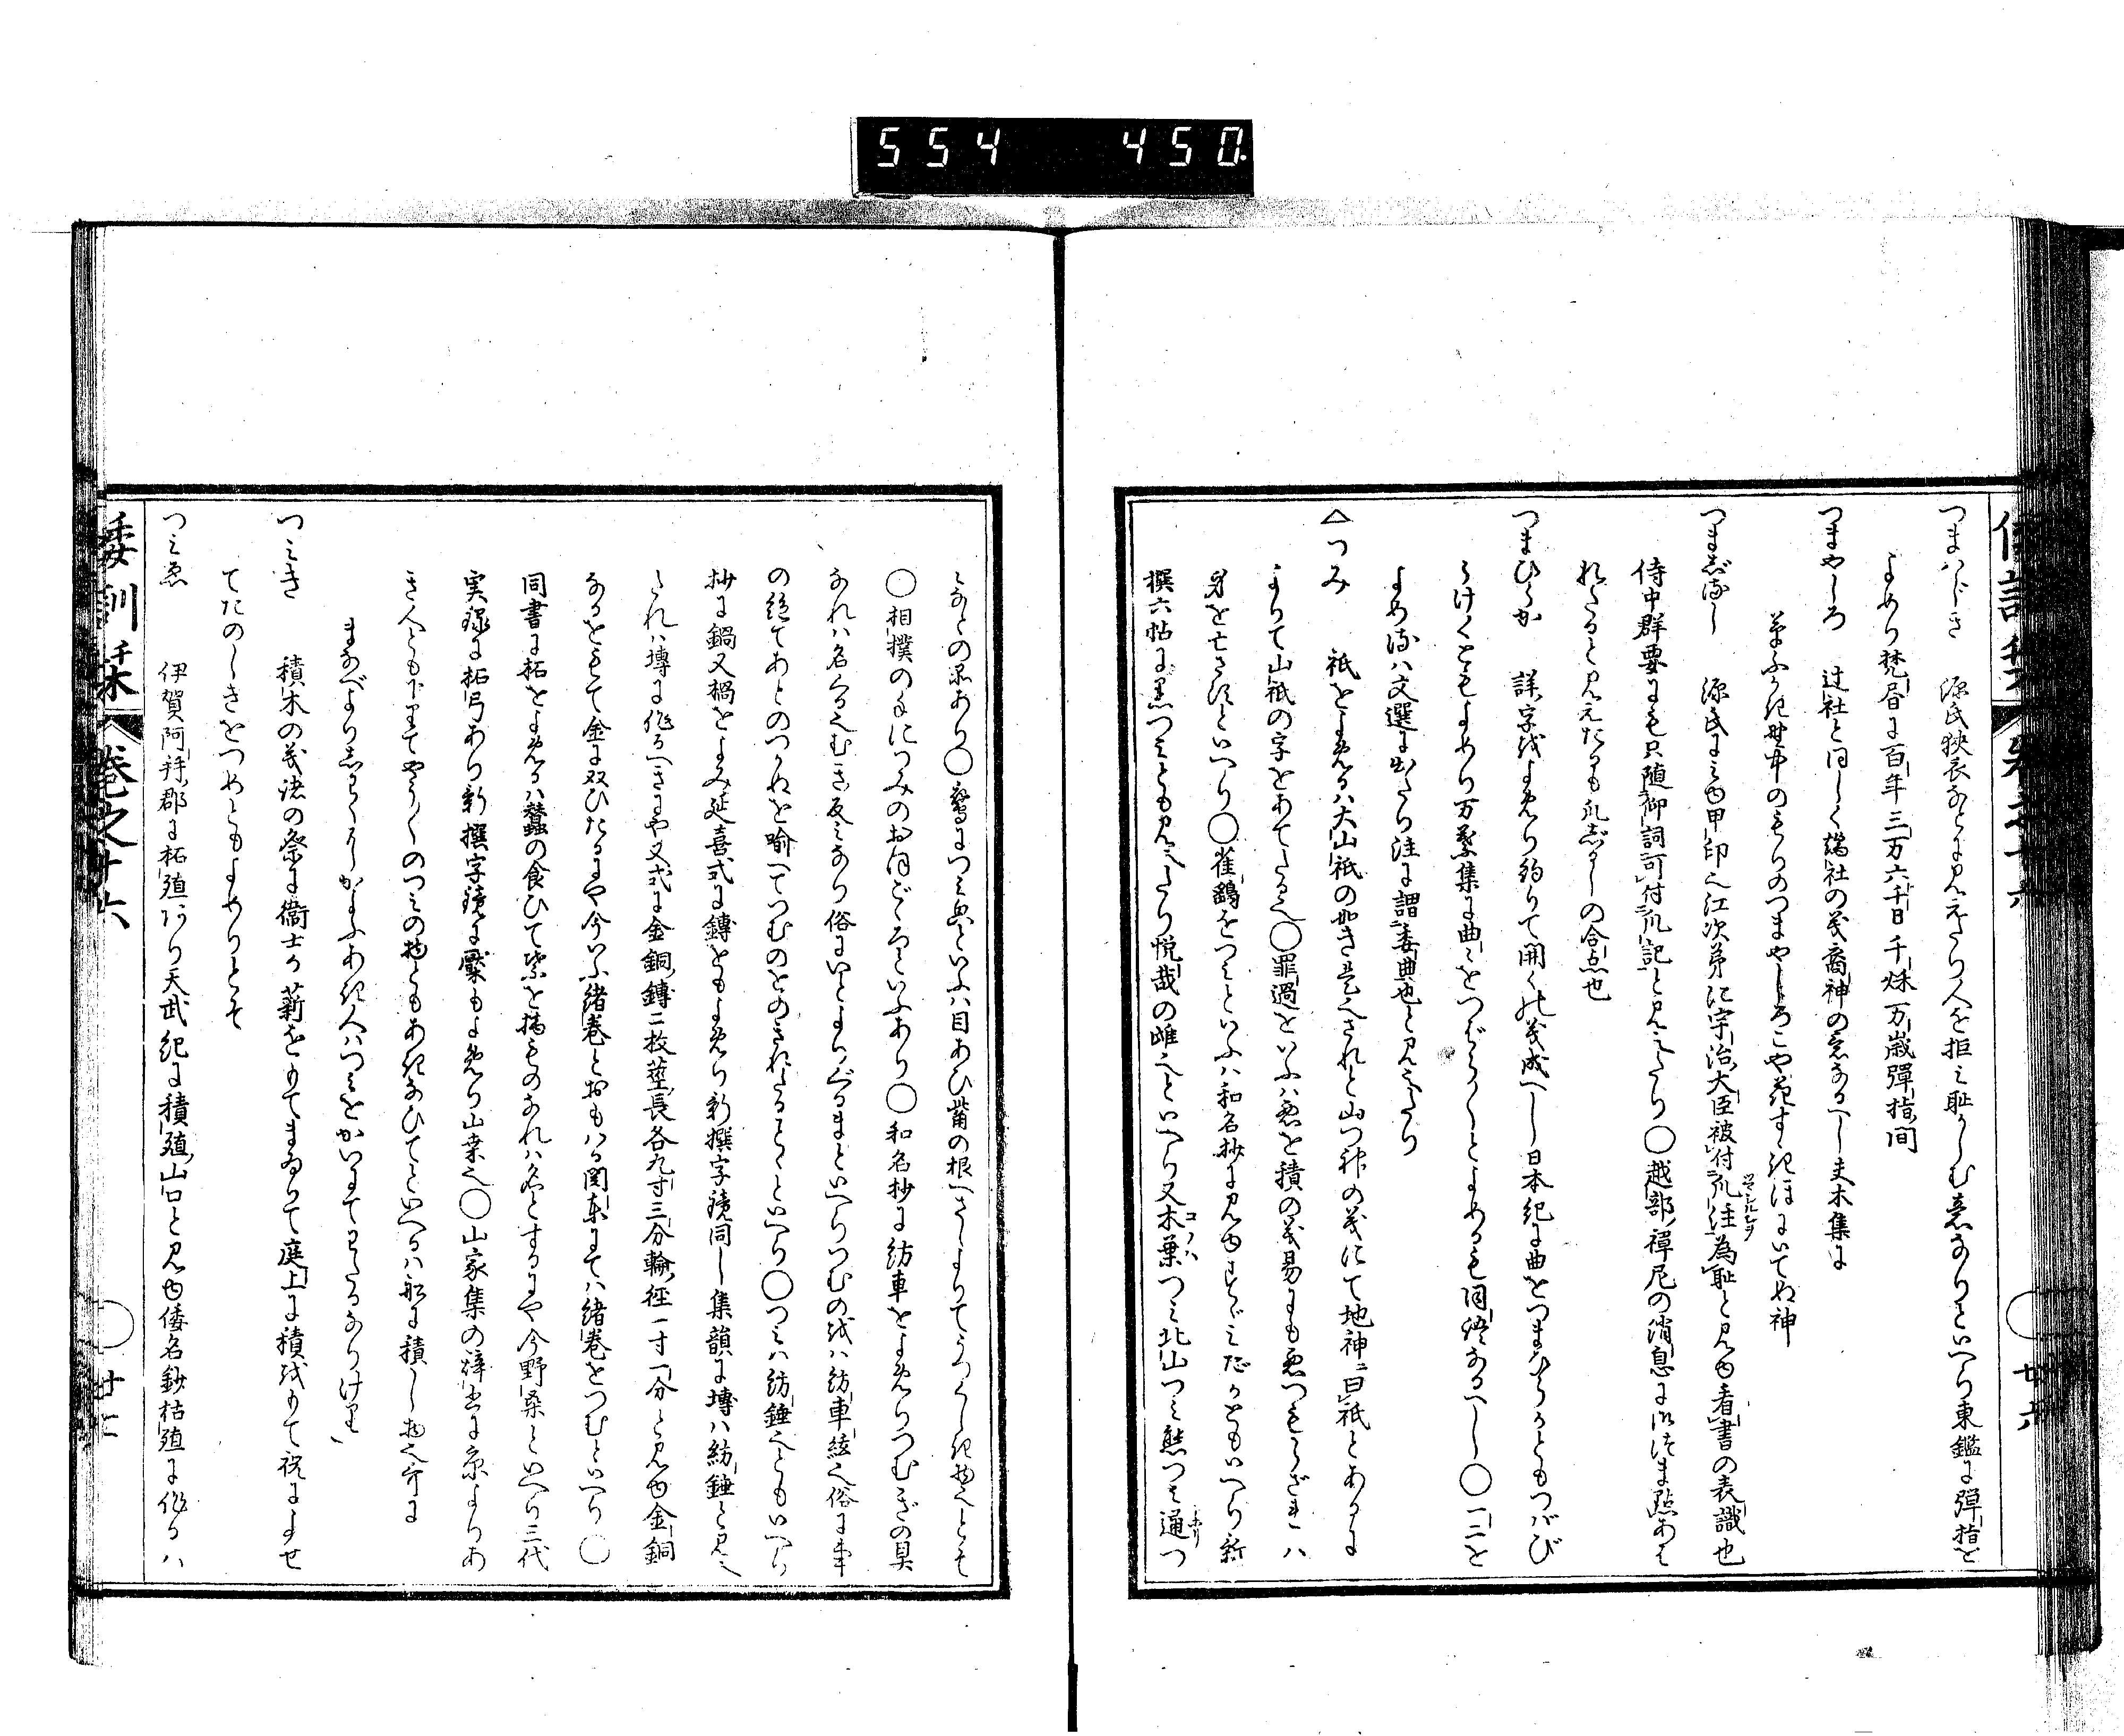 554 450
つまはじき 源氏狭衣なとに見えたり人を拒み恥しむ意なりといへり東鑑に弾指を
よめり梵唇に百年三万六千日千妹一万歳彈指間
つまやしろ 辻社と同しく端社の義裔神の意なるへし夫木集に
草ふかき野中のもりのつまやしろこや花すゝきほにいてぬ神
つまじるし 源氏にみゆ甲印也江次第に宇治大臣被付爪注為恥と見ゆ看書の表識也
侍中群要にも只随仰詞可付爪記と見えたり〇越部禅尼の消息に御つま點あは
れたると見えたるも爪じるしの合点也
つまひらか 詳字をよめり約りて開くの義成へし日本紀に曲をつまひらかともつばび
らけくともよめり万葉集に曲々をつばら〳〵とよめるも同語なるへし〇一二を
よめるハ文選に出たり注に謂委曲也と見えたり
△つみ 祇をよめるハ大山祇の如き是也されと山つ神の義にて地神曰祇とあるに
よりて山祇の字をあてたる也〇罪過をいふハ悪を積の義易にも悪つもらざれハ
身を亡さすといへり〇雀鷂をつみといふハ和名抄に見ゆすゞみだかともいへり新
撰六帖に黒つみとも見えたり悦哉の雌也といへり又木葉つみ北山つみ熊つみ通つ
倭訓栞 巻之十六 廿六
みなとの品あり〇鷹につみ歯といふハ目あひ觜の根へさしよりてうつくしき物也とそ
〇相撲の手につみのおほごろといふあり〇和名抄に紡車をよめりつむぎの具
なれハ名くる也むき反みなり俗にいとよりぐるまといへりつむのをハ紡車絃也俗に事
の絶てあとのつかぬを喩へてつむのをのきれたることといへり〇つみハ紡錘也ともいへり
抄に鍋又楇をよみ延喜式に鎛をもよめり新撰字鏡同し集韻に塼ハ紡錘と見え
たれハ塼に作るへきにや又式に金銅鎛二枚莖長各九寸三分輪径一寸一分と見ゆ金銅
なるをもて金に双ひたるにや今いふ緒巻とおもハる関東にてハ緒巻をつむといへり〇
同書に柘をよめるハ蠶の食ひて紫を摘ものなれハ名とするにや今野桑といへり三代
実録に柘弓あり新撰字鏡に檿もよめり山桒也〇山家集の詞書に京よりあ
き人とも下りてやう〳〵のつみの物ともあきなひてといへるハ船に積し物也哥に
まなべよりしわくへかよふあき人ハつみをかいにてわたるなりけり
つみき 積木の義諸の祭に衞士か薪をもてまゐりて庭上に積をもて祝によせ
てたのしきをつめともよめりとそ
つみゑ 伊賀阿拝郡に柘殖あり天武紀に積殖山口と見ゆ倭名鈔枯殖に作るハ
倭訓栞 巻之十六 廿七